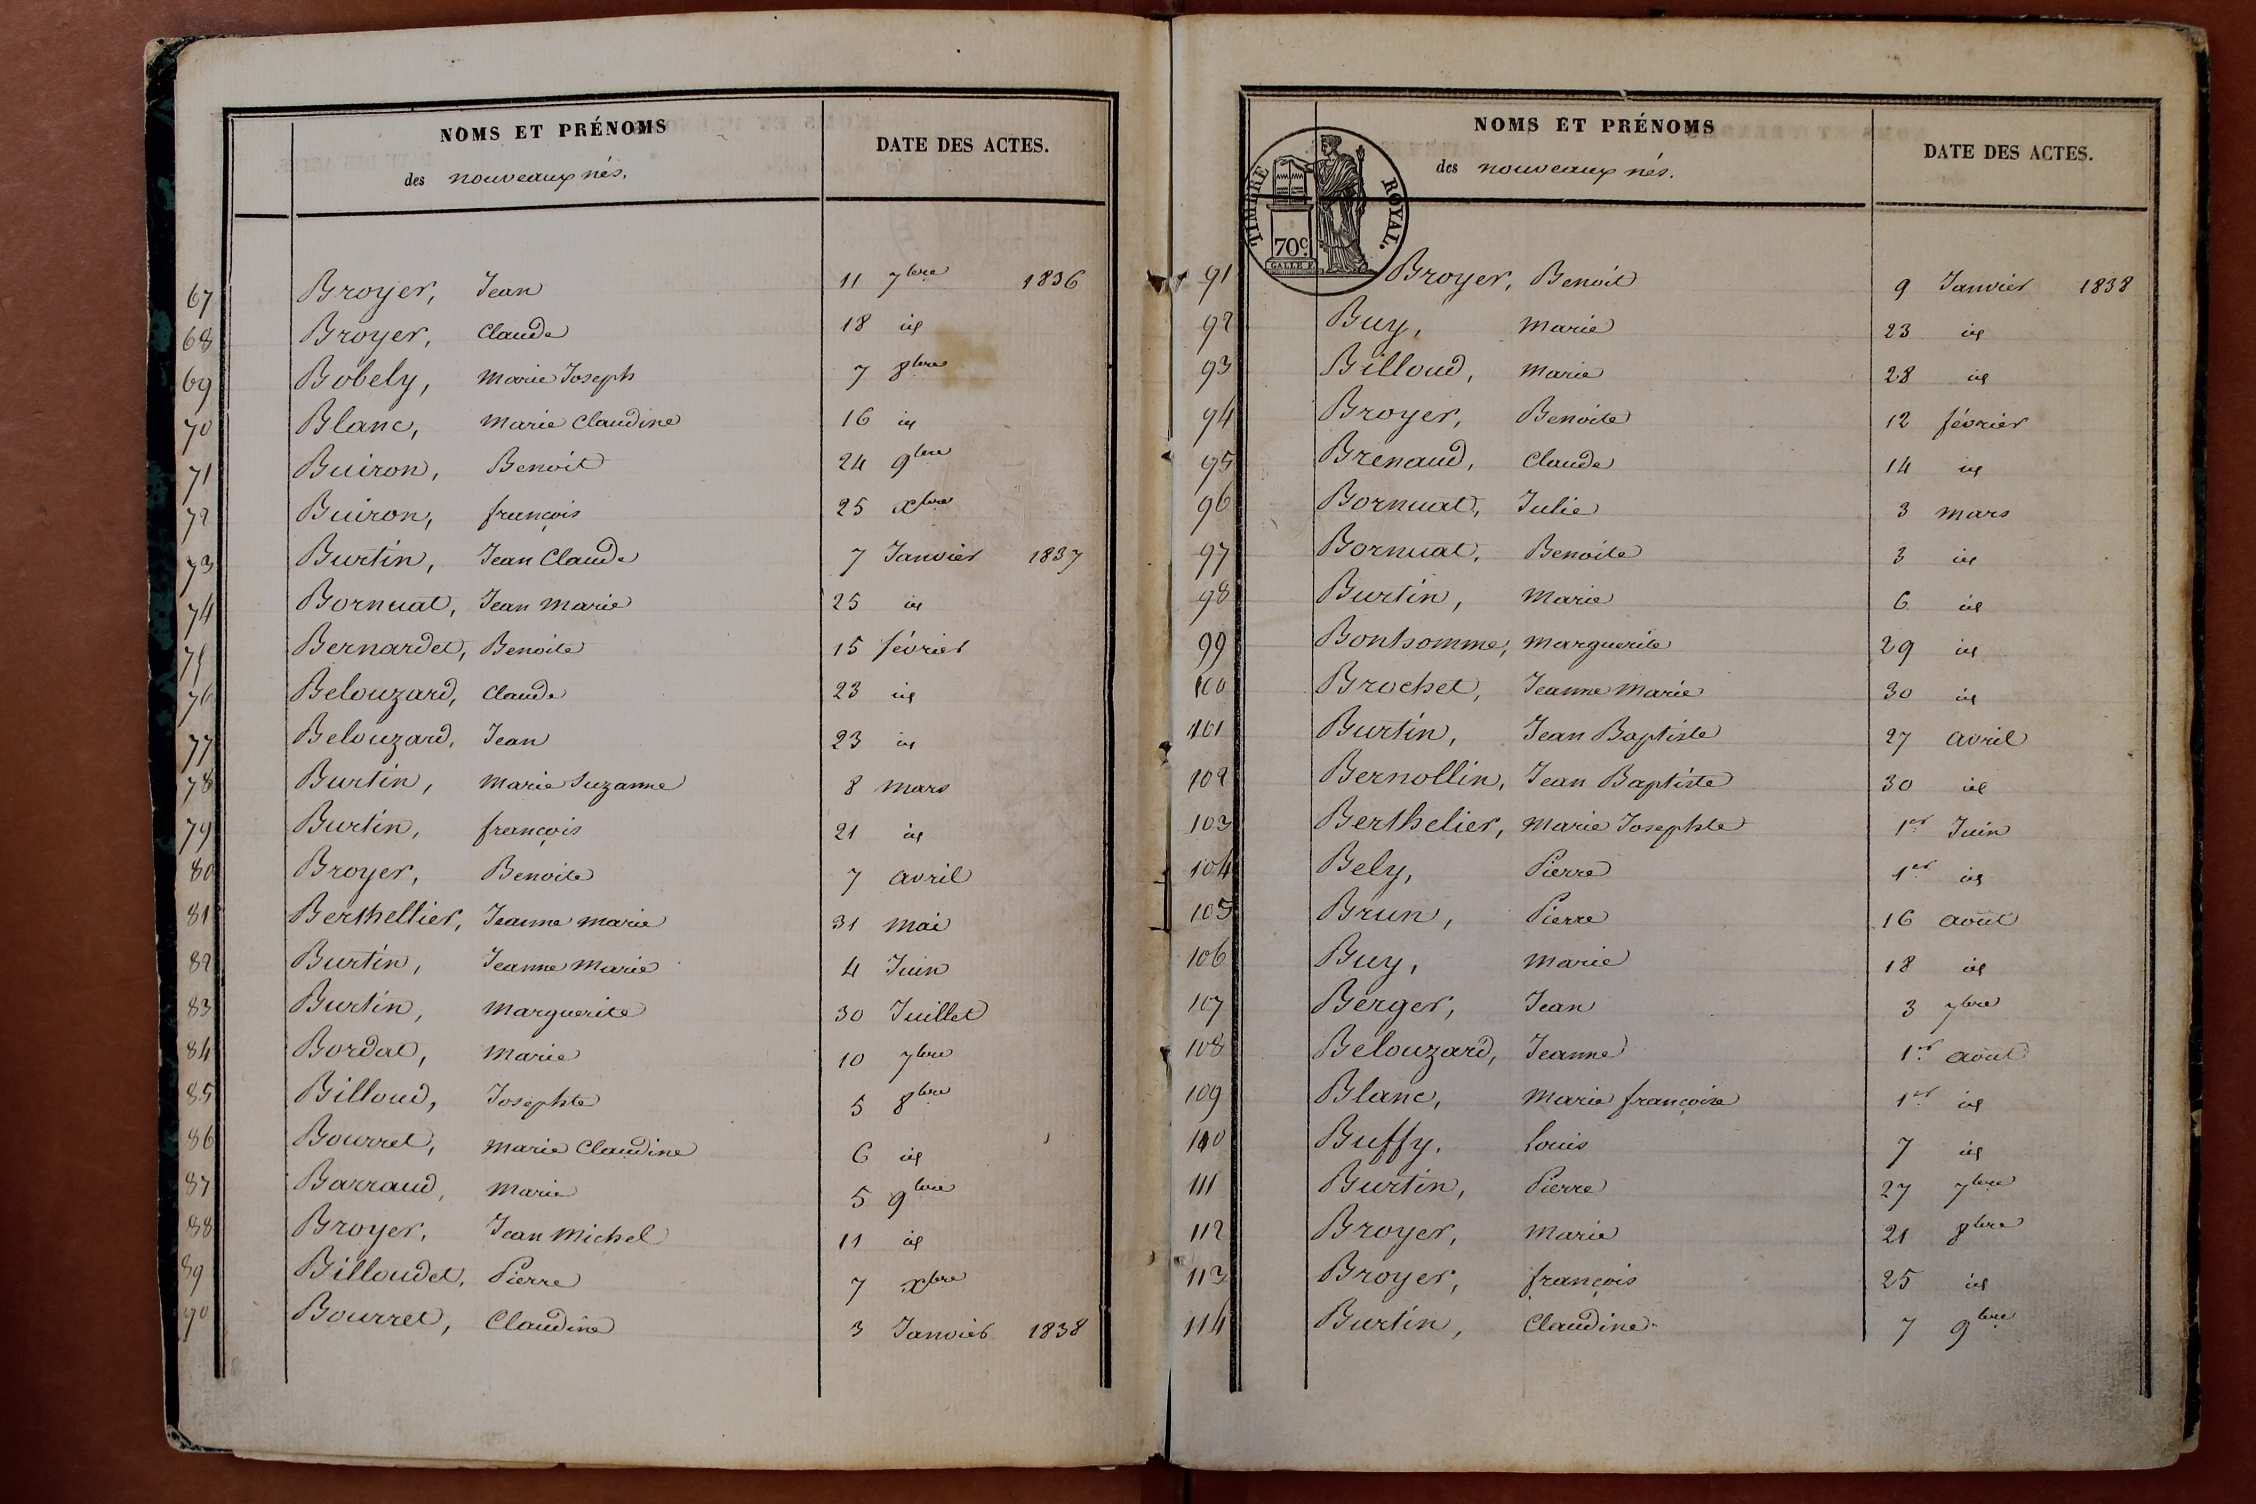 NOMS ET PRÉNOMS
des nouveaux nés.
DATE DES ACTES.
67 Broyer, Jean 11 7bre 1836
68 Broyer, Claude 18 id
69 Bobely, Marie Joseph 7 8bre
70 Blanc, Marie Claudine 16 id
71 Buiron, Benoit 24 9bre
72 Buiron, françois 25 xbre
73 Burtin, Jean Claude 7 Janvier 1837
74 Bornuat, Jean Marie 25 id
75 Bernardet, Benoite 15 février
76 Belouzard, Claude 23 id
77 Belouzard, Jean 23 id
78 Burtin, Marie Suzanne 8 mars
79 Burtin, françois 21 id
80 Broyer, Benoite 7 avril
81 Berthellier, Jeanne Marie 31 mai
82 Burtin, Jeanne Marie 4 Juin
83 Burtin, Marguerite 30 Juillet
84 Bordat, Marie 10 7bre
85 Billoud, Josephte 5 8bre
86 Bourret, Marie Claudine 6 id
87 Barraud, Marie 5 9bre
88 Broyer, Jean Michel 11 id
89 Billoudet, Pierre 7 xbre
90 Bourret, Claudine 3 Janvier 1838
NOMS ET PRÉNOMS
des nouveaux nés.
DATE DES ACTES.
TIMBRE ROYAL.
70c
GALLE F.
91 Broyer, Benoit 9 Janvier 1838
92 Buy, Marie 23 id
93 Billoud, Marie 28 id
94 Broyer, Benoite 12 février
95 Brenaud, Claude 14 id
96 Bornuat, Julie 3 mars
97 Bornuat, Benoite 3 id
98 Burtin, Marie 6 id
99 Bonhomme, Marguerite 29 id
100 Brochet, Jeanne Marie 30 id
101 Burtin, Jean Baptiste 27 avril
102 Bernollin, Jean Baptiste 30 id
103 Berthelier, Marie Josephte 1er Juin
104 Bely, Pierre 1er id
105 Brun, Pierre 16 août
106 Buy, Marie 18 id
107 Berger, Jean 3 7bre
108 Belouzard, Jeanne 1er août
109 Blanc, Marie françoise 1er id
110 Buffy, Louis 7 id
111 Burtin, Pierre 27 7bre
112 Broyer, Marie 21 8bre
113 Broyer, françois 25 id
114 Burtin, Claudine 7 9bre